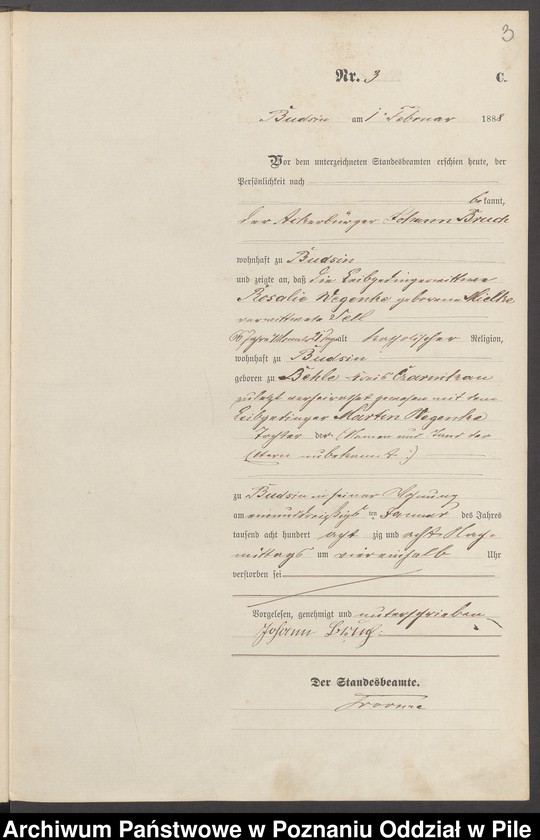 3
Nr. 3
C.
Budsin am 1. Februar 1888
Vor dem unterzeichneten Standesbeamten erschien heute, der
Persönlichkeit nach
bekannt,
der Ackerbürger Johann
wohnhaft zu Budsin
und zeigte an, daß die Leibgedingerwittwe
Rosalie Wegenke geborene Mielke
verwittwete Tell
alt katholischer Religion,
wohnhaft zu Budsin
geboren zu Behle Kreis Czarnikau
zuletzt verheirathet gewesen mit dem
Leibgedinger Martin Wegenke
Tochter der (Namen und Stand der
Eltern unbekannt)
zu Budsin in seiner Wohnung
am einunddreißigsten Januar des Jahres
tausend acht hundert achtzig und acht Nach-
mittags um viereinhalb Uhr
verstorben sei
Vorgelesen, genehmigt und unterschrieben
Johann
Der Standesbeamte.
Archiwum Państwowe w Poznaniu Oddział w Pile